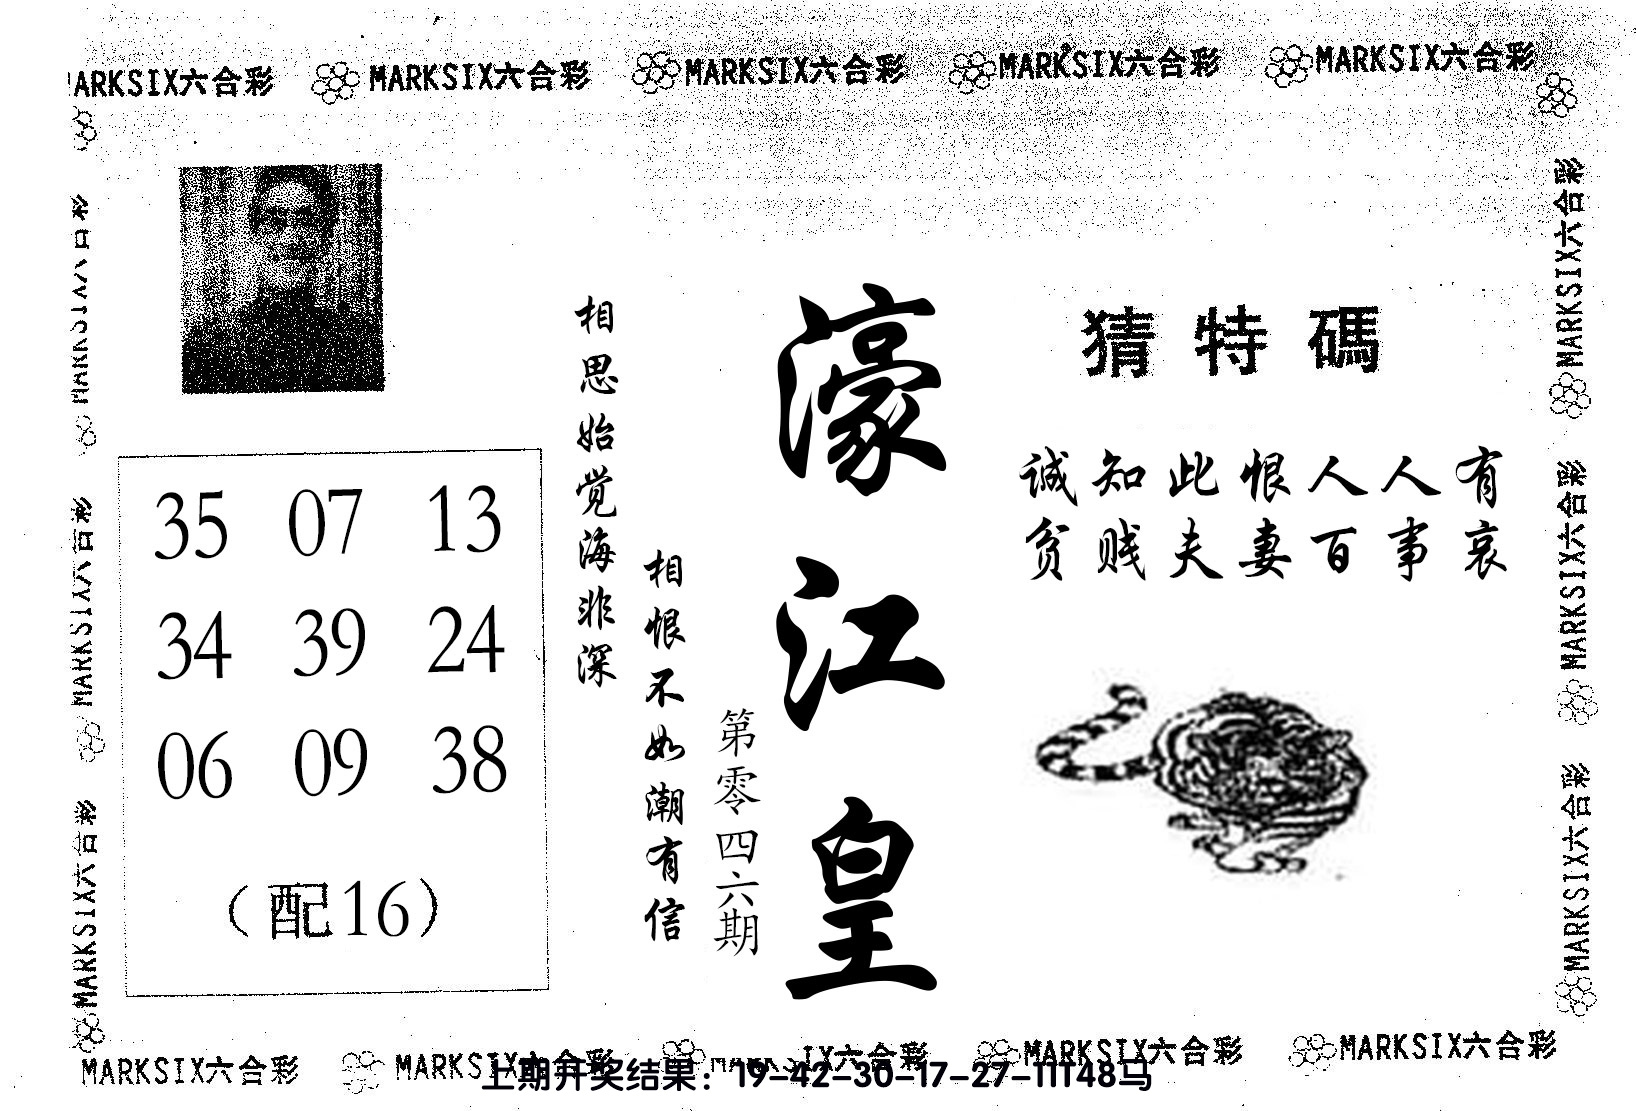 MARKSIX六合彩 MARKSIX六合彩 MARKSIX六合彩 MARKSIX六合彩
MARKSIX六合彩
猜特碼
诚知此恨人人有
贫贱夫妻百事哀
濠江皇
第零四六期
相思始觉海非深
相恨不如潮有信
35 07 13
34 39 24
06 09 38
（配16）
MARKSIX六合彩
MARKSIX六合彩
MARKSIX六合彩
MARKSIX六合彩
MARKSIX六合彩
MARKSIX六合彩 MARKSIX六合彩 MARKSIX六合彩 MARKSIX六合彩
上期开奖结果：19-42-30-17-27-11T48马